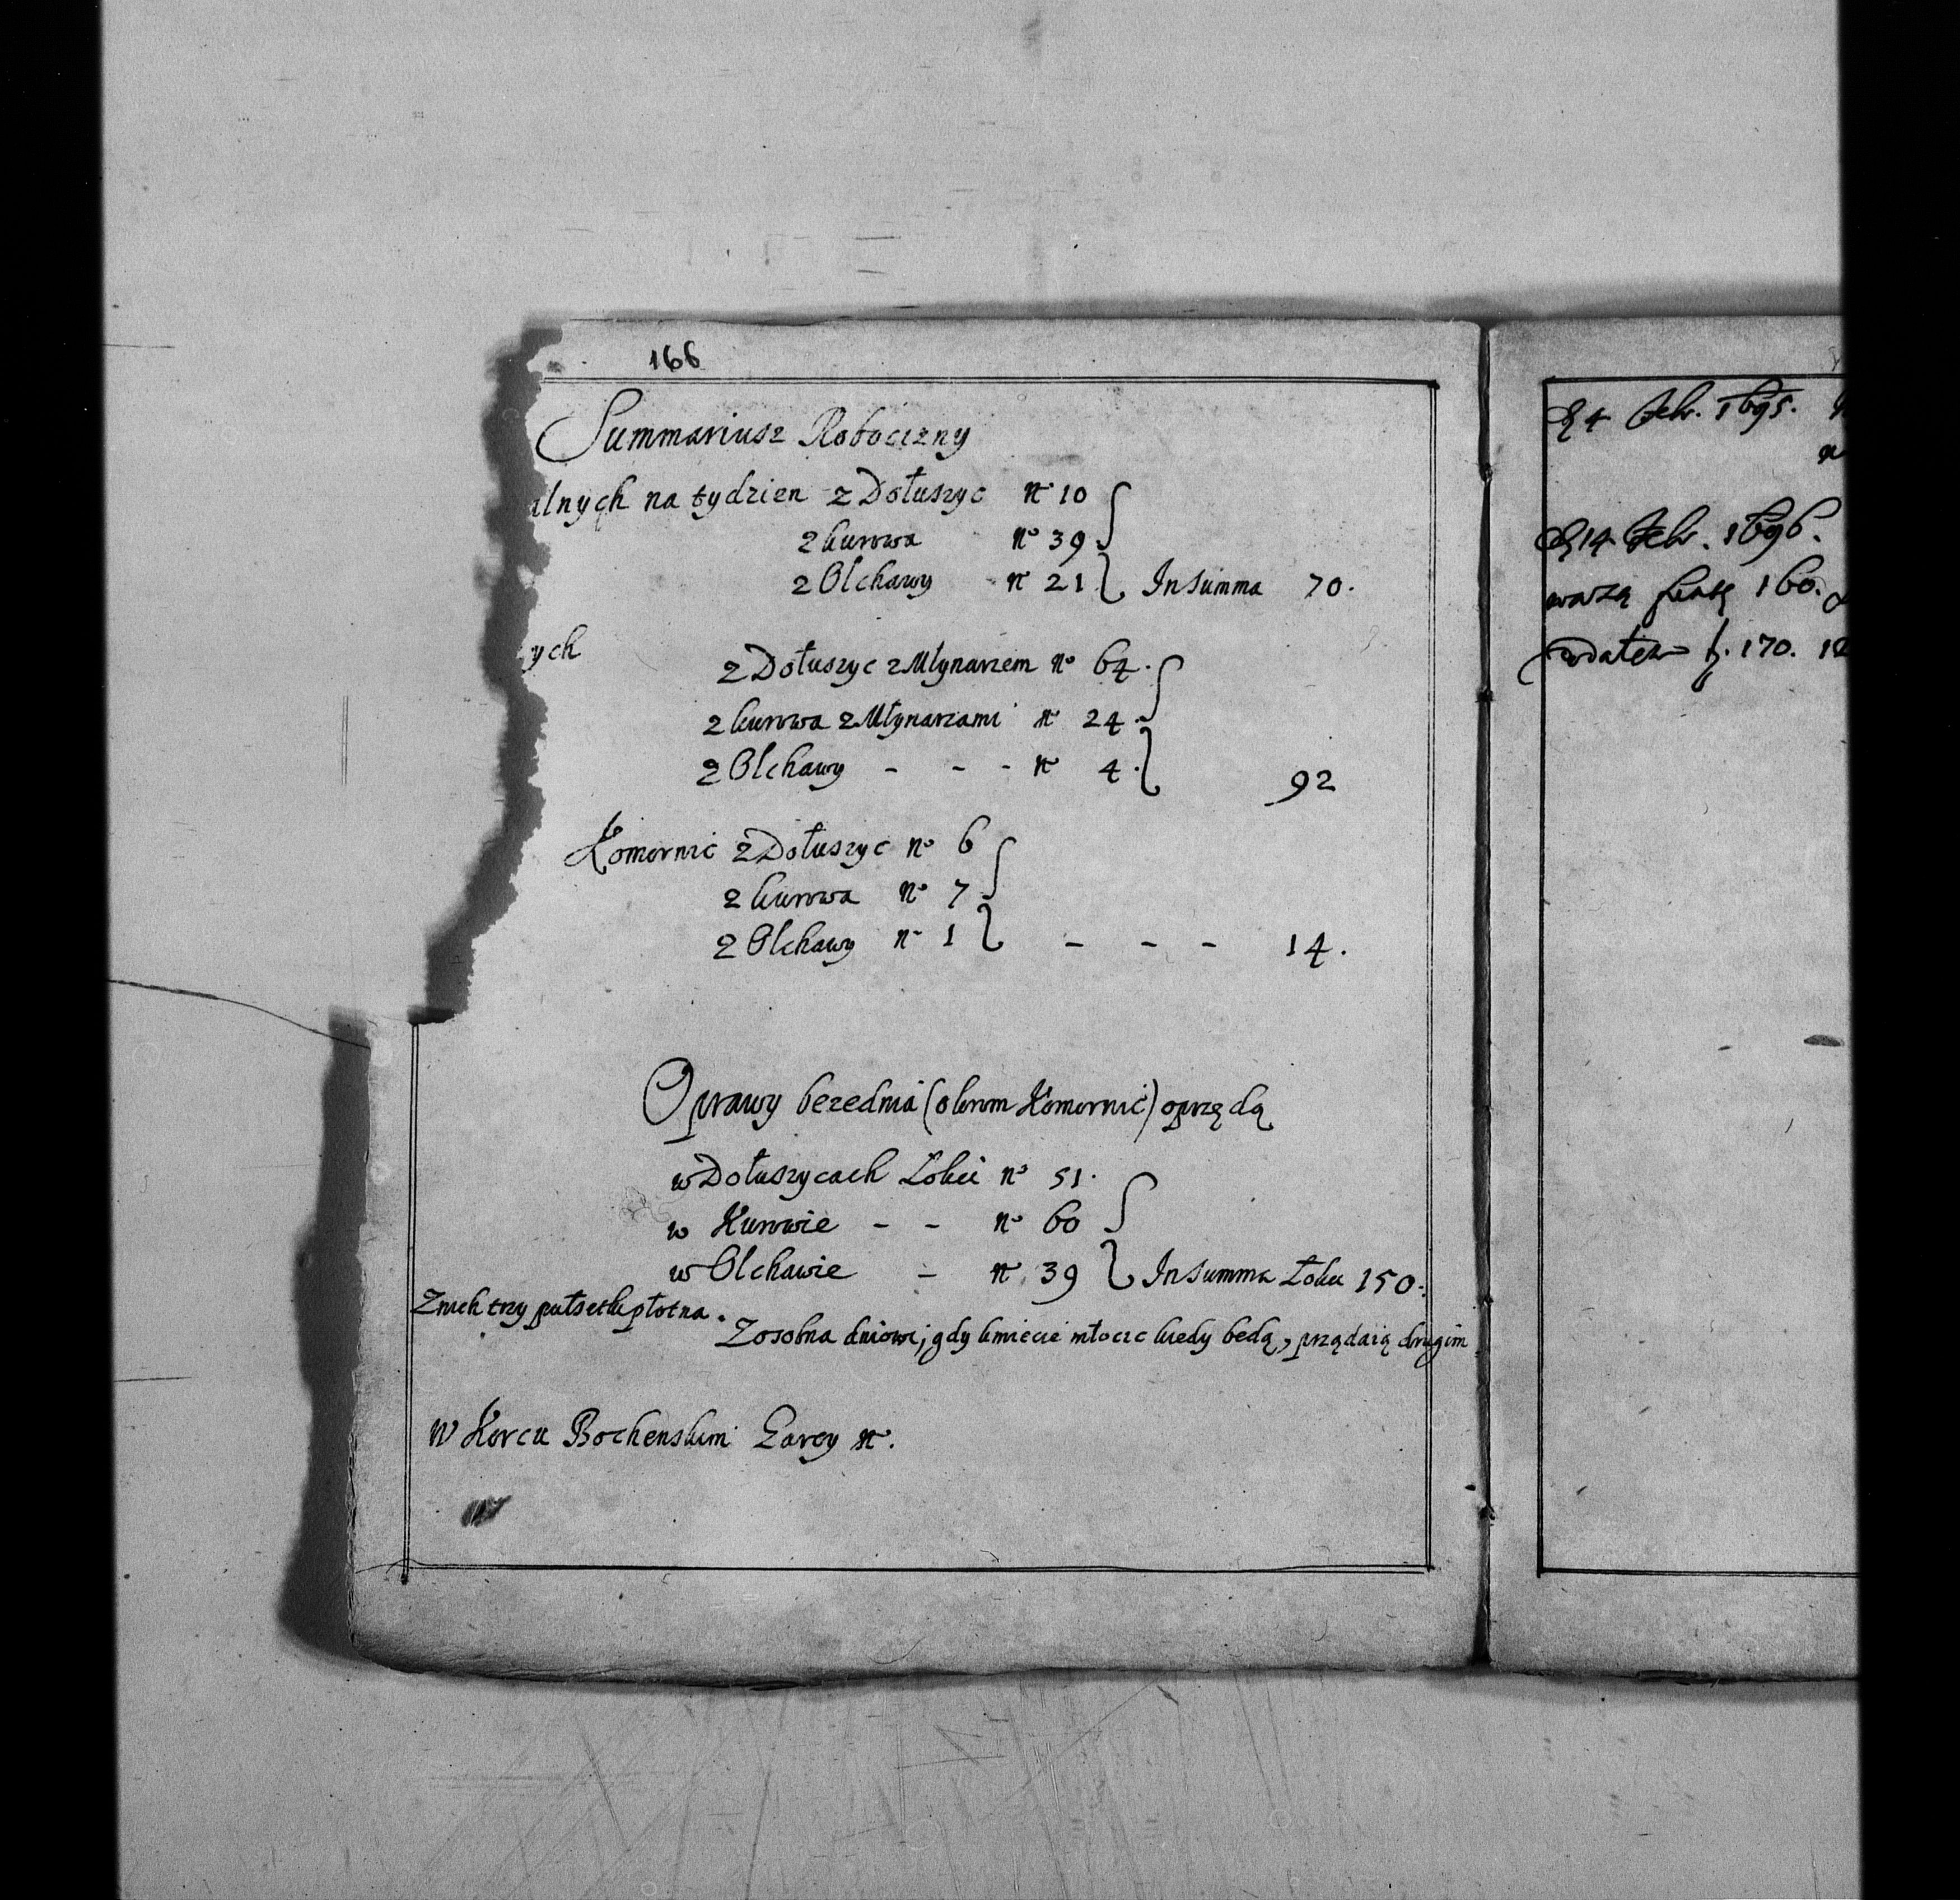 166
Summariusz Roboczny
alnych na tydzien z Dołuszyc n° 10
z kurowa n° 39
z Olchawy n° 21 In Summa 70.
ych
z Dołuszyc z Młynarzem n° 64.
z kurowa z Młynarzami n° 24.
z Olchawy - - - n° 4.
92
Komornic z Dołuszyc n° 6
z kurowa n° 7
z Olchawy n° 1 - - - 14.
Oprawy bezednia (okrom Komornic) oprzędą
w Dołuszycach Łokci n° 51.
w Kurowie - - n° 60
w Olchawie - n° 39 In Summa Łokci 150.
Znich trzy pułsetki płotna.
Zosobna dniowi, gdy kmiecie młocic kiedy bedą, przędaią drugim
W Korcu Bochenskim Garcy n°.
4 Febr. 1695.
14 Febr. 1696.
160.
170.